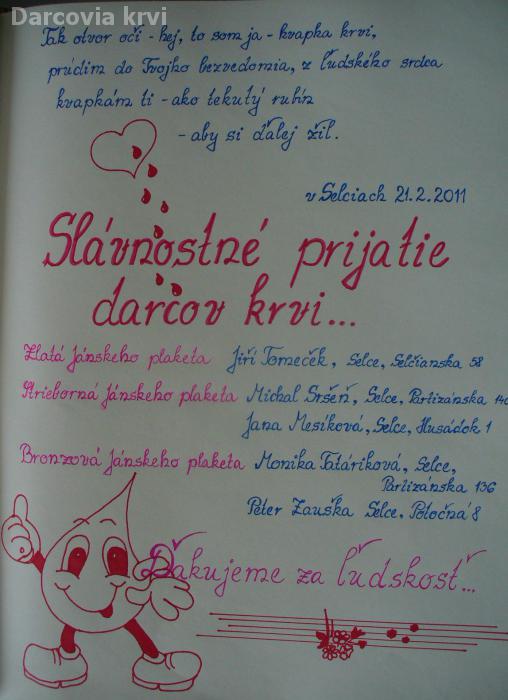 Darcovia krvi
Tak otvor oči - hej, to som ja - kvapka krvi,
prúdim do Tvojho bezvedomia, z ľudského srdca
kvapkám ti - ako tekutý rubín
- aby si ďalej žil.
v Selciach 21.2.2011
Slávnostné prijatie
darcov krvi...
Zlatá Jánskeho plaketa Jiří Tomeček, Selce, Selčianska 58
Strieborná Jánskeho plaketa Michal Sršeň, Selce, Partizánska
Jana Mesíková, Selce, Husádok 1
Bronzová Jánskeho plaketa Monika Tatáriková, Selce,
Partizánska 136
Peter Zauška Selce, Potočná 8
Ďakujeme za ľudskosť...